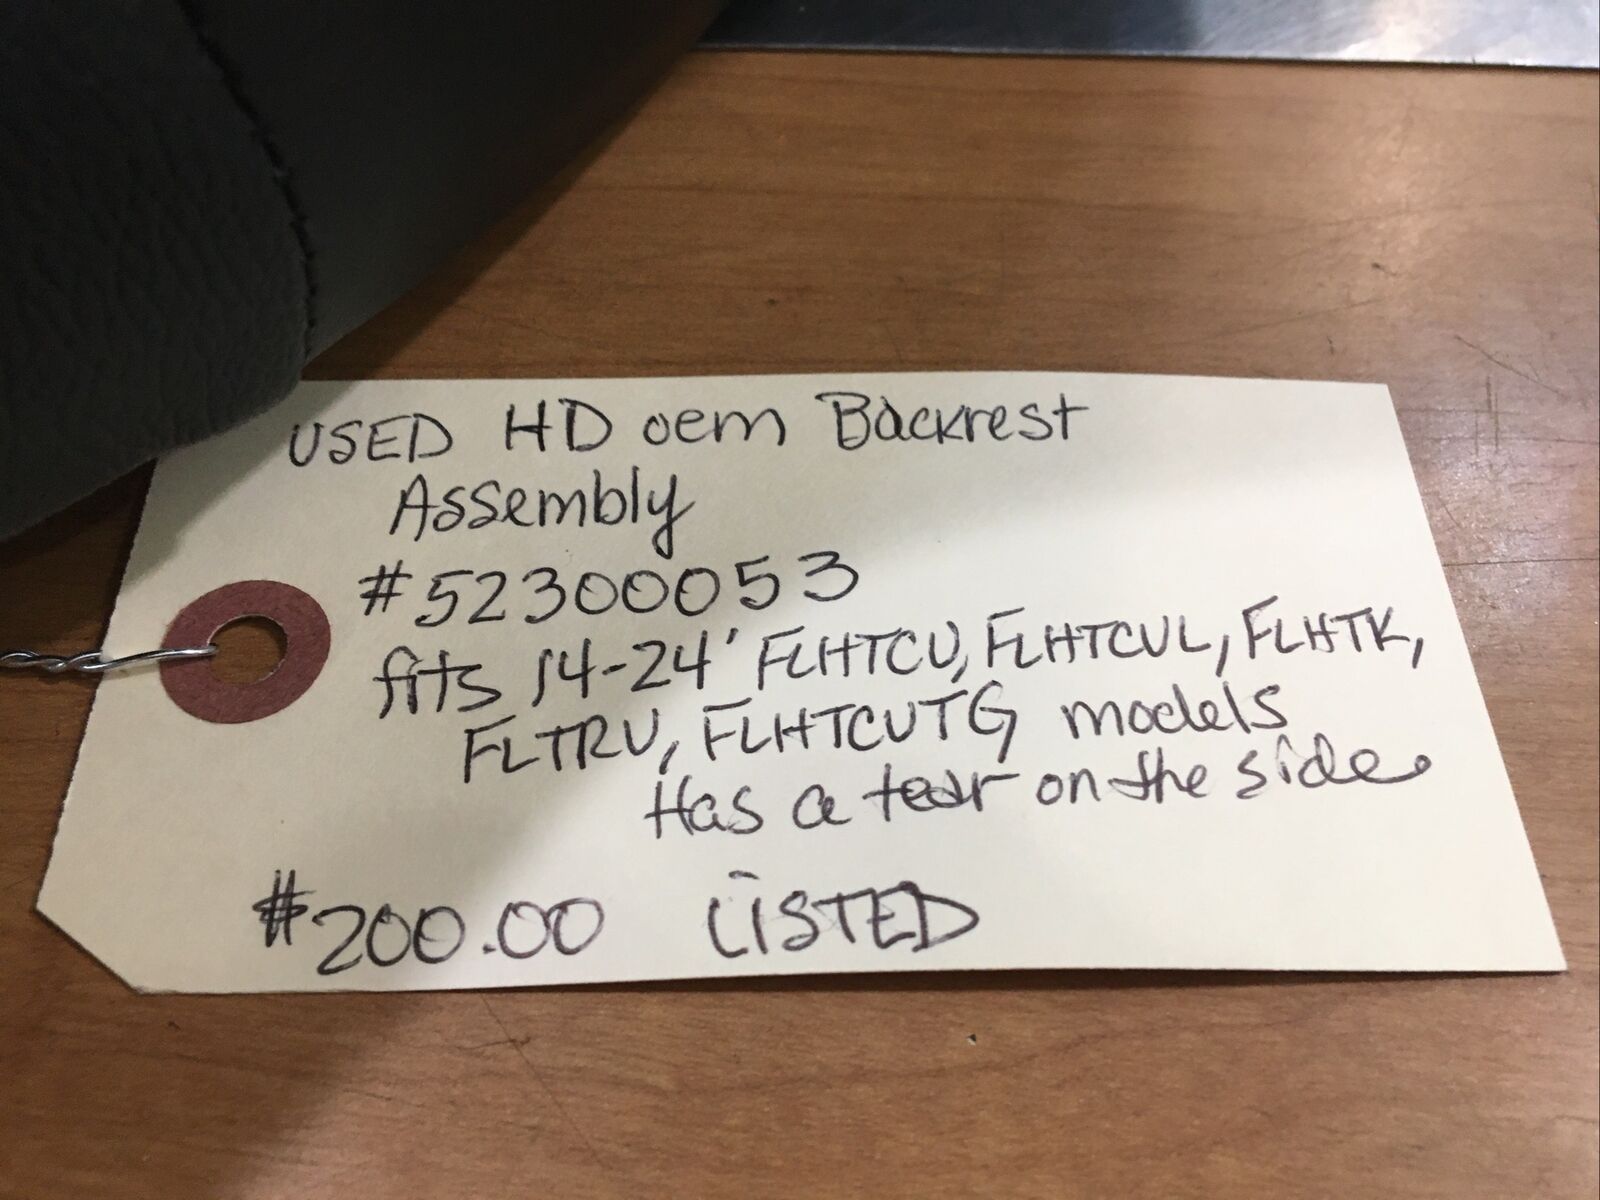 USED HD oem Backrest
Assembly
#52300053
fits 14-24' FLHTCU, FLHTCUL, FLHTK,
FLTRU, FLHTCUTG models
Has a tear on the side.
$200.00 LISTED